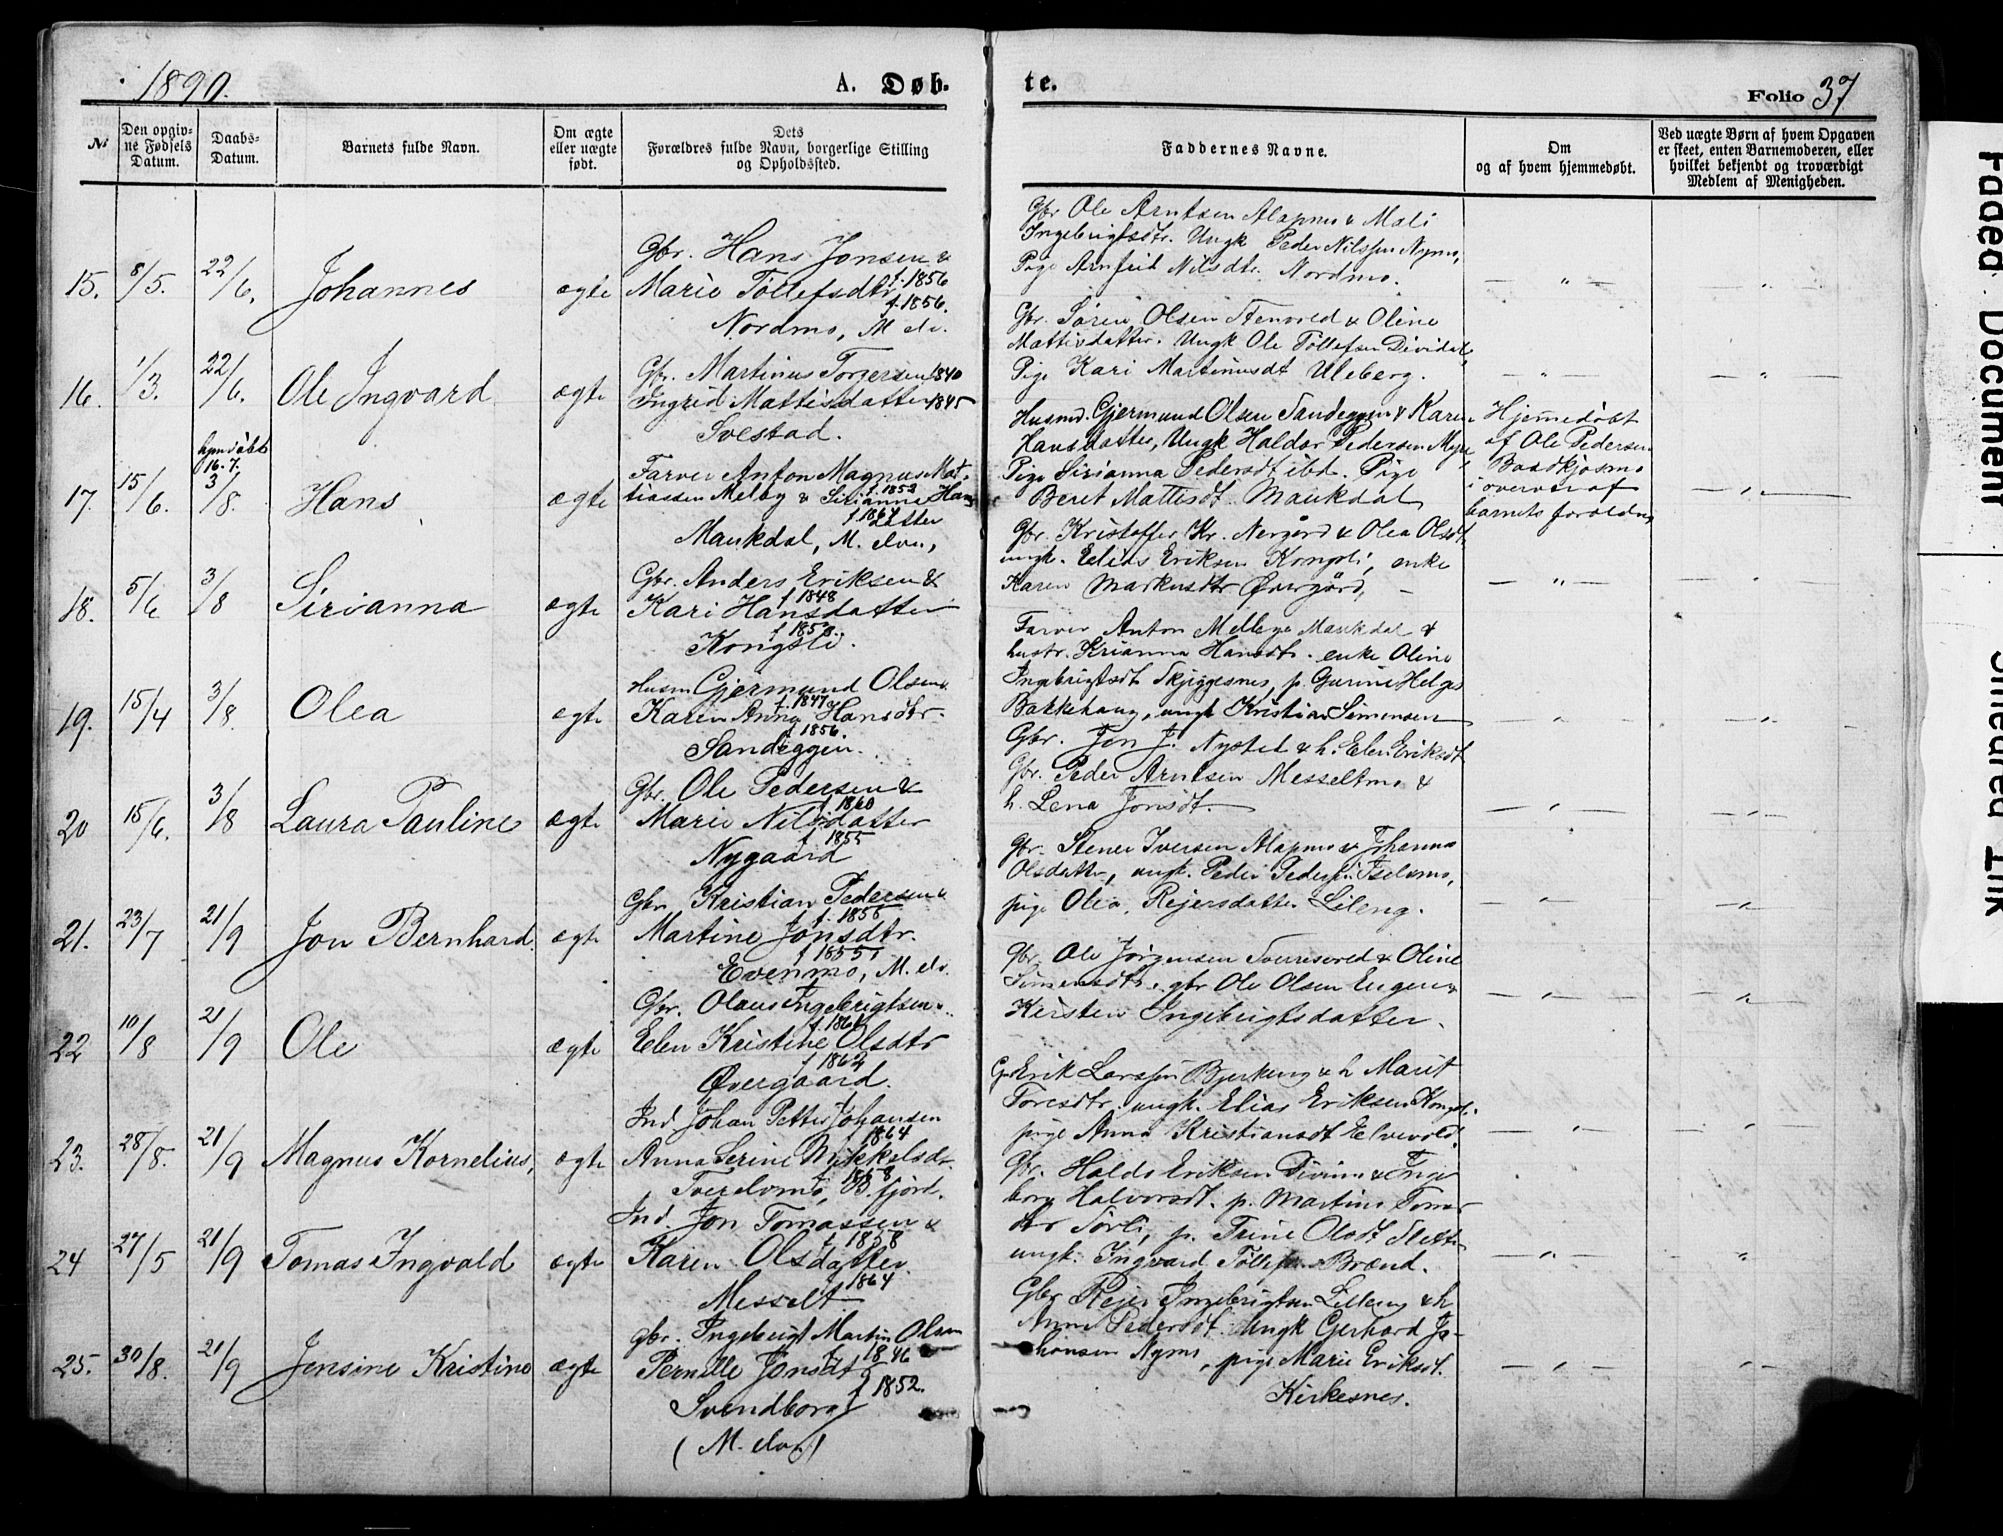 1890.
A. Døb-
te.
Folio 37
No
Den opgiv-
ne Fødsels
Datum.
Daabs-
Datum.
Barnets fulde Navn.
Om ægte
eller uægte
født.
Dets
Forældres fulde Navn, borgerlige Stilling
og Opholdssted.
Faddernes Navne.
Om
og af hvem hjemmedøbt.
Ved uægte Børn af hvem Opgaven
er skeet, enten Barnemoderen, eller
hvilket bekjendt og troværdigt
Medlem af Menigheden.
15. 8/5. 22/6. Johannes ægte
Gbr. Hans Jonsen &
f. 1856
Marie Tollefsdtr
f. 1856.
Nordmo, M elv.
Gbr Ole Arntsen Alapmo & Mali
Ingebrigtsdtr. Ungk Peder Nilssen Nymo,
Pige Arnfrid Nilsdtr. Nordmo.
16. 1/3. 22/6. Ole Ingvard ægte
Gbr. Martinus Torgersen 1840
Ingrid Mattisdatter 1845
Svestad.
Gbr. Søren Olsen Stenvold & Oline
Mattisdatter. Ungk Ole Tollefsen Dividal,
Pige Kari Martinusdt Uleberg.
17. 15/6. hjemdøbt 16.7. 3/8. Hans ægte
Farver Anton Magnus Mat-
tiassen Melby & Sirianna Hans
f. 1853
f 1864
datter
Maukdal, M. elven,
Husmd. Gjermund Olsen Sandeggen & Karen
Hansdatter, Ungk Haldor Pedersen Moen,
Pige Sirianna Pedersdt ibd. Pige
Beret Mattisdt Maukdal
Hjemmedøbt
af Ole Pedersen
Baadkjosmo
i overvær af
barnets forældre
18. 5/6 3/8 Sirianna ægte
Gbr. Anders Eriksen &
f 1848
Kari Hansdatter
f 1853.
Kongsli.
Gbr. Kristoffer Kr. Nergård & Olea Olsdt,
ungk. Elias Eriksen Kongsli, enke
Karen Markusdtr Øvergård,
19. 15/4 3/8. Olea ægte
Husm Gjermund Olsen &
f. 1847
Karen Anna Hansdtr.
f 1856
Sandeggen.
Farver Anton Melbye Maukdal &
hustr. Kirianna Hansdt. enke Oline
Ingebrigtsdt Skjeggesnes, p. Gurine Helges
Bakkehaug, ungk Kristian Simonsen
20 15/6. 3/8 Laura Pauline ægte
Gbr. Ole Pedersen &
f 1860
Marie Nilsdatter
f 1855
Nygaard
Gbr. Jon J. Nysted & h. Elen Eriksdt
Gbr. Peder Arntsen Messeltmo &
h. Lena Jonsdt.
21. 23/7 21/9 Jon Bernhard. ægte
Gbr Kristian Pedersen &
f. 1856
Martine Jonsdtr.
f 1855
Evenmo, M. elv.
Gbr. Stener Iversen Alapmo & Johanna
Olsdatter, ungk. Peder Pedersen Iselvmo,
pige Olea Rejersdatter Lileng.
22 10/8 21/9 Ole ægte
Gbr. Olaus Ingebrigtsen &
f. 1861
Elen Kristine Olsdtr
f 1862
Øvergaard.
Gbr Ole Jørgensen Sverresvold & Oline
Simensdtr. gbr Ole Olsen Engen &
Kirsten Ingebrigtsdatter.
23. 28/8. 21/9 Magnus Kornelius, ægte
Ind. Johan Petter Johansen
f 1864
Anna Serine Mikkelsdr
1858
Tverelvmo, B. fjord.
G. Erik Larssen Bjerkeng & h Marit
Toresdtr. ungk. Elias Eriksen Kongsli.
pige Anna Kristiansdt Elvevold.
24 27/5 21/9 Tomas Ingvald ægte
Ind. Jon Tomassen &
f 1858
Karen Olsdatter.
f 1864
Messelt
Gbr. Haldo Eriksen Divimo & Inge
borg Halvorsdt. p. Martine Tomas
dtr Sørli, p. Trine Olsdt Slette
ungk. Ingvard Tollefsen Brænd.
25. 30/8. 21/9 Jensine Kristine ægte
gbr. Ingebrigt Martin Olsen
f 1846
Pernille Jonsdt
f 1852.
Svendborg
(M. elv.)
Gbr Rejer Ingebrigtsen Lilleng & h
Anne Pedersdt. Ungk Gerhard Jo-
hansen Nymo, pige Marie Eriksdt.
Kirkesnes.
Faded Document
Smeared Ink